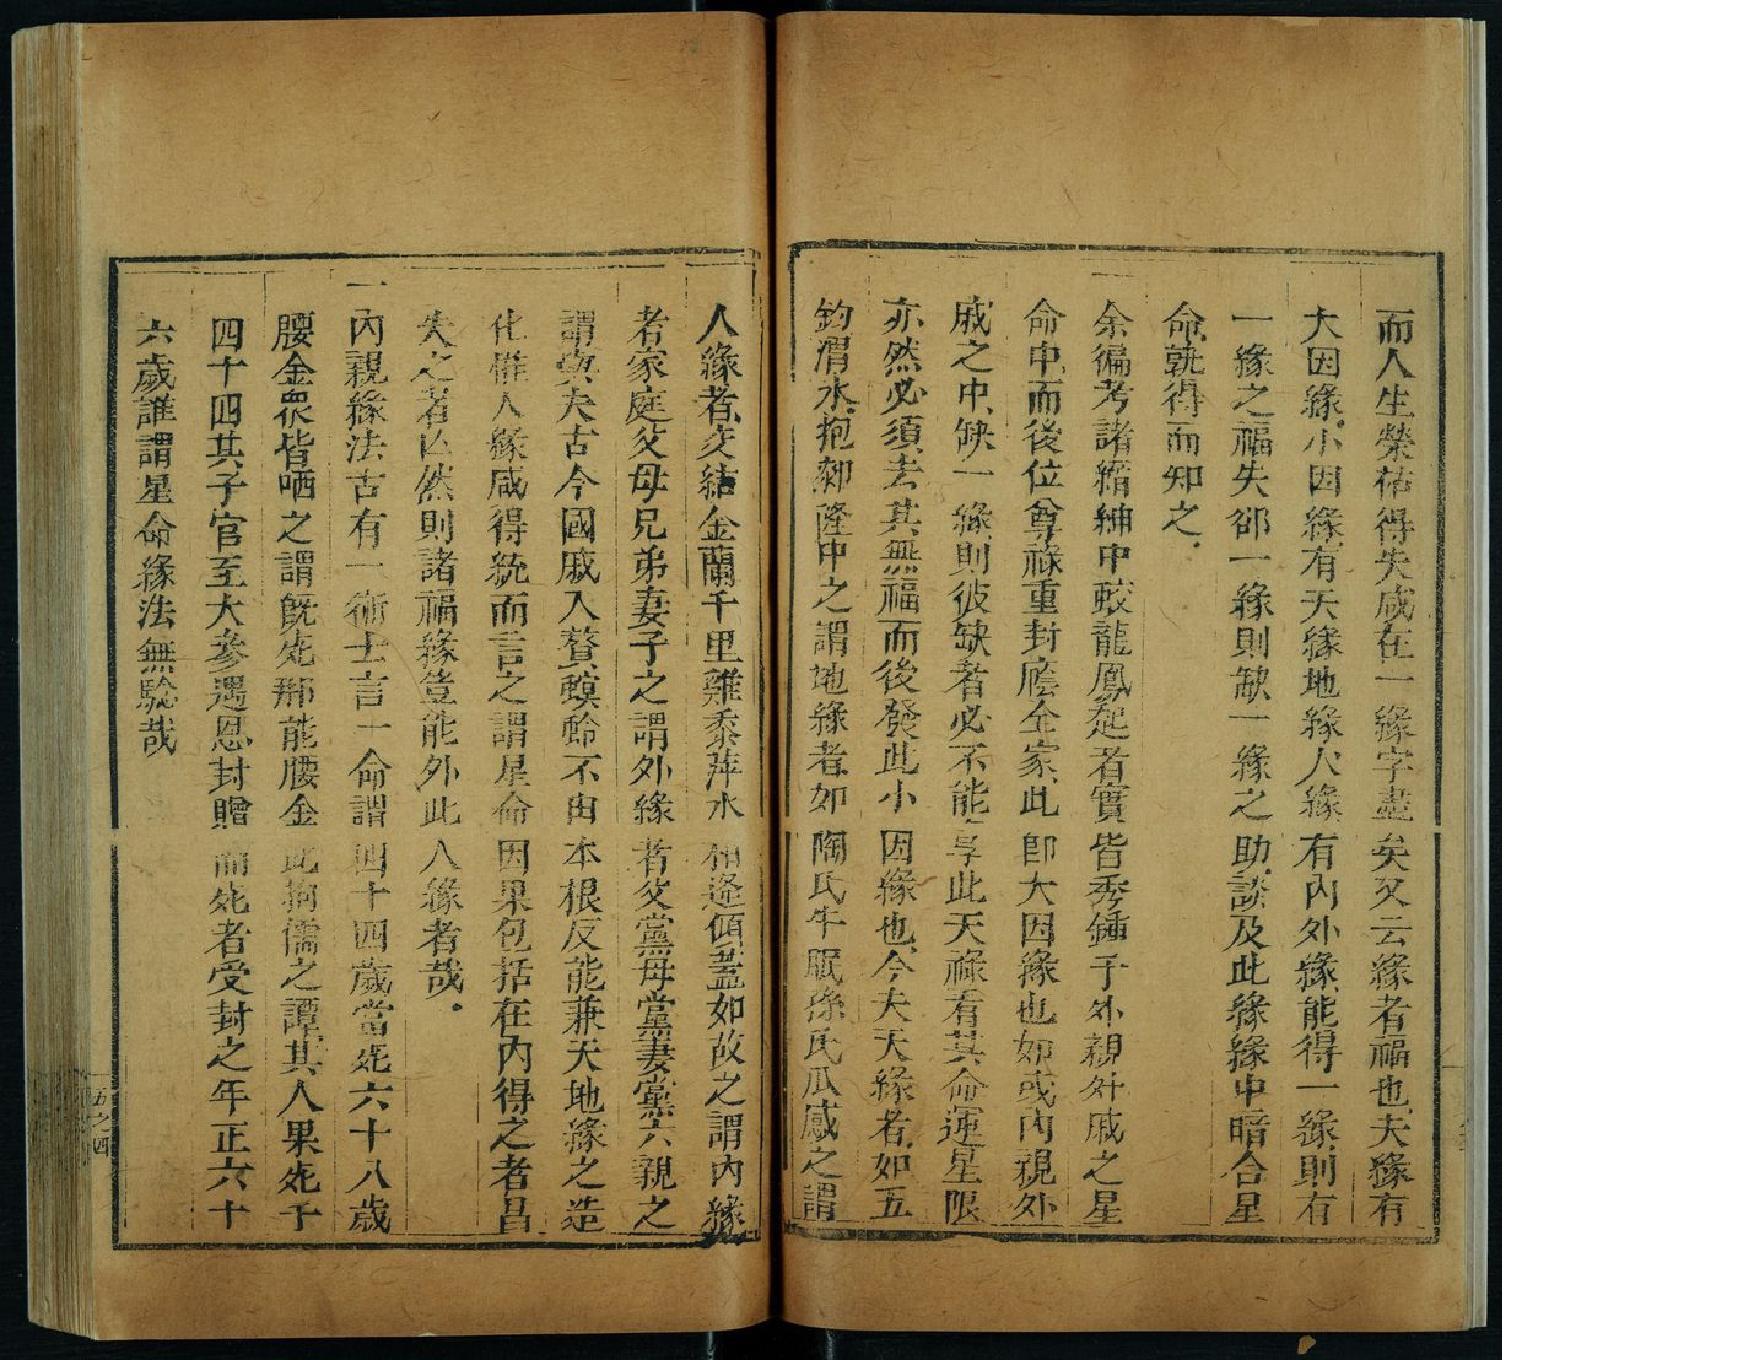 而人生榮枯得失咸在一緣字盡矣又云緣者福也夫緣有
大因緣小因緣有天緣地緣人緣有內外緣能得一緣則有
一緣之福失卻一緣則缺一緣之助談及此緣緣中暗合星
命孰得而知之
一余徧考諸縉紳中蛟龍鳳起者實皆秀鍾于外親外戚之星
命中而後位尊祿重封廕全家此卽大因緣也如或內親外
戚之中缺一緣則彼缺者必不能享此天祿看其命運星限
亦然必須去其無福而後發此小因緣也今夫天緣者如五
釣渭水抱郷隆中之謂地緣者如陶氏牛眠孫氏瓜感之謂
人緣者交結金蘭千里雞黍萍水相逢傾蓋如故之謂內緣
者家庭父母兄弟妻子之謂外緣者父黨母黨妻黨六親之
謂與夫古今國戚入贅螟蛉不由本根反能兼天地緣之造
化惟人緣咸得統而言之謂星命因果包括在內得之者昌
失之者亡然則諸福緣豈能外此人緣者哉
一內親緣法古有一術士言一命謂四十四歲當死六十八歲
腰金衆皆哂之謂旣死那能腰金此拘儒之譚其人果死于
四十四其子官至大參遇恩封贈而死者受封之年正六十
六歲誰謂星命緣法無驗哉
五之四